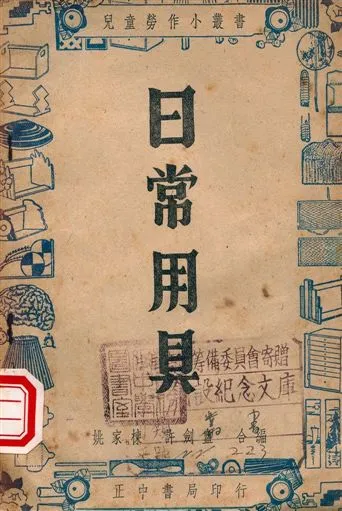 兒童勞作小叢書
日常用具
籌備委員會寄贈
紀念文庫
圖書室
姚家棟 許劍盦 合編
223
正中書局印行